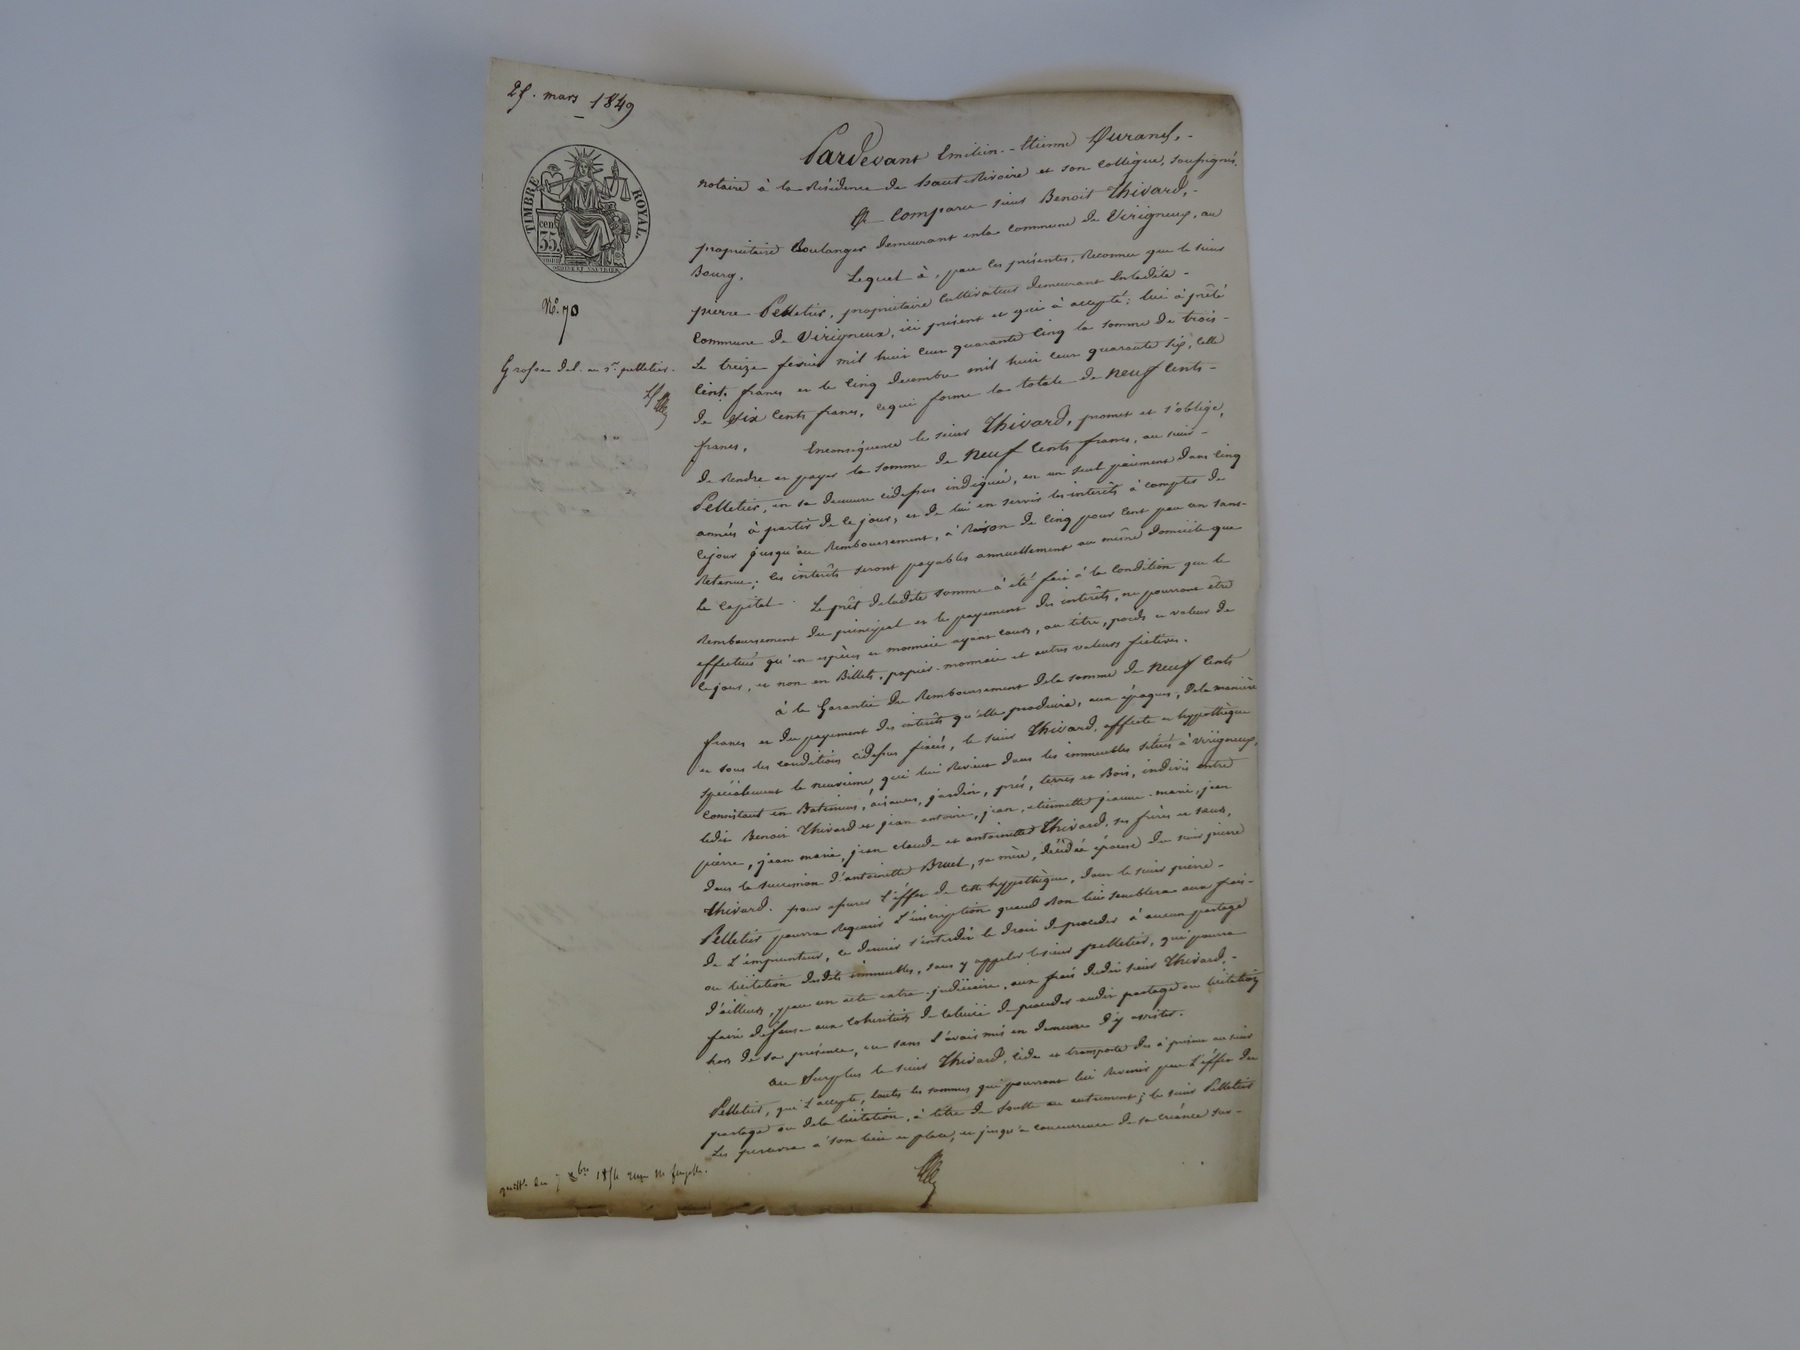 25. mars 1849
TIMBRE ROYAL
cen.
35
N.º 70
Grosse dél. au s.r pelletier.
Pardevant Emilien-Etienne Durand,
notaire à la Résidence de haut-Rivoire et son collègue, soussignés.
A Comparu sieur Benoit Thivard,
propriétaire Boulanger demeurant en la commune de Virigneux, au
Bourg. Lequel à, par les présentes, Reconnu que le sieur
pierre Pelletier, propriétaire Cultivateur demeurant En ladite
commune de Virigneux, ici présent et qui à accepté; lui à prêté
Le treize fevrier mil huit cent quarante cinq la somme de trois
cent. francs et le cinq decembre mil huit cent quarante six, celle
de Six Cents francs, ce qui forme la totale de neuf cents
francs. Enconséquence le sieur Thivard, promet et s'oblige,
de Rendre et payer la somme de neuf cents francs, au sieur
Pelletier, en sa demeure cidessus indiquée, en un seul paiement dans cinq
années à partir de ce jour, et de lui en servir les interêts à compter de
cejour jusqu'au Remboursement, à Raison de cinq pour cent par an sans
Retenue; les interêts seront payables annuellement au même domicile que
le capital. Le prêt deladite somme à été fait à la condition que le
Remboursement du principal et le payement des interêts, ne pourront être
effectués qu'en espèces et monnaie ayant cours, au titre, poids et valeur de
cejour, et non en Billets, papier-monnaie et autres valeurs fictives.
à la Garantie du Remboursement dela somme de neuf cents
francs et du payement des interêts qu'elle produira, aux époques, dela manière
et sous les conditions cidessus fixées, le sieur Thivard, affecte et hypothèque
spécialement le neuvième qui lui Revient dans les immeubles situés à Virigneux,
Consistant en Batiments, aisances, jardin, prés, terres et Bois, indivis entre
ledit Benoit Thivard et jean antoine, jean, etiennette jeanne-marie, jean
pierre, jean marie, jean claude et antoinette Thivard, ses frères et sœurs,
dans la succession d'antoinette Bruel, sa mère, décédée épouse du sieur pierre
Thivard. pour assurer l'effet de cette hypothèque, dont le sieur pierre
Pelletier pourra Requerir l'inscription quand Bon lui semblera aux frais
de l'emprunteur, ce dernier s'interdit le droit de procéder à aucun partage
ou licitation desdits immeubles, sans y appeler le sieur pelletier, qui pourra
d'ailleurs, par un acte extra-judiciaire, aux frais dudit sieur Thivard,
faire défense aux cohéritiers de celui ci de procéder audit partage ou licitation
hors de sa présence, ou sans l'avoir mis en demeure d'y assister.
au Surplus le sieur Thivard, cède et transporte dès à présent au sieur
Pelletier, qui l'accepte, toutes les sommes qui pourront lui Revenir par l'effet du
partage ou dela licitation, à titre de soulte ou autrement; le sieur Pelletier
Les percevra a son lieu et place, et jusqu'a concurrence de sa créance sur